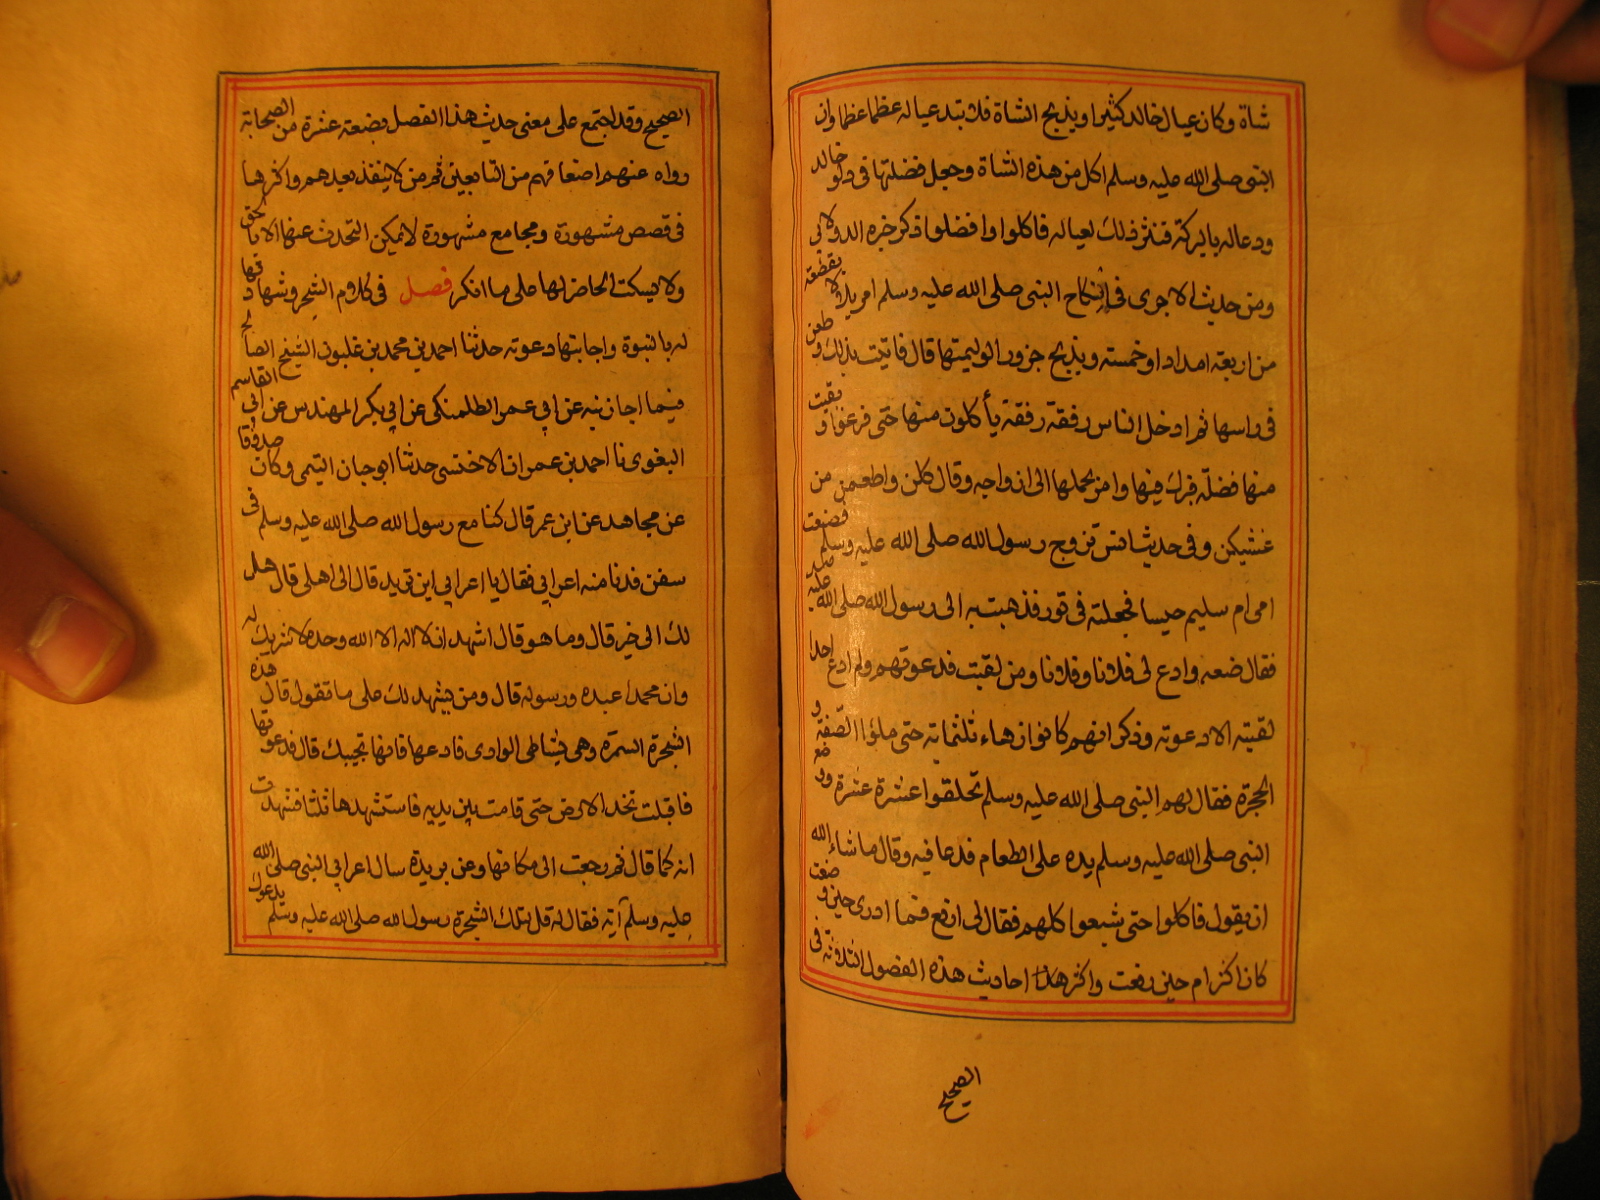 شاة وكان عيال خالد كثيرا ويذبح الشاة فلا تبد عياله عظما عظما وان
النبي صلى الله عليه وسلم اكل من هذه الشاة وجعل فضلتها في دلو خالد
ودعا له بالبركة فنثر ذلك لعياله فاكلوا وافضلوا ذكر خبره الدولابي
ومن حديث الاجرى في انكاح النبي صلى الله عليه وسلم امر بلالا بقصعة
من اربعة امداد او خمسة ويذبح جزورا لوليمتها قال فاتيت بذلك وطعن
في راسها ثم ادخل الناس رفقة رفقة يأكلون منها حتى فرغوا وبقيت
منها فضلة فبرك فيها وامر بحملها الى ازواجه وقال كلن واطعمن من
غشيكن وفي حديث انس تزوج رسول الله صلى الله عليه وسلم فصنعت
امى ام سليم حيسا فجعلته في تور فذهبت به الى رسول الله صلى الله عليه
فقال ضعه وادع لى فلانا وفلانا ومن لقيت فدعوتهم ولم ادع احدا
لقيته الا دعوته وذكر انهم كانوا زهاء ثلثمائة حتى ملؤا الصفة و
الحجرة فقال لهم النبي صلى الله عليه وسلم تحلقوا عشرة عشرة ووضع
النبي صلى الله عليه وسلم يده على الطعام فدعا فيه وقال ما شاء الله
ان يقول فاكلوا حتى شبعوا كلهم فقال لى ارفع فما ادرى حين وضعت
كان اكثر ام حين رفعت واكثر احاديث هذه الفصول الثلاثة في
الصحيح
الصحيح وقد اجتمع على معنى حديث هذا الفصل بضعة عشرة من الصحابة
رواه عنهم اضعافهم من التابعين ثم من لا ينعد بعدهم واكثرها
في قصص مشهورة ومجامع مشهورة لا يمكن التحدث عنها الا بالحق
ولا يسكت الحاضر لها على ما انكر فصل في كلام الشجر وشهادتها
له بالنبوة واجابتها دعوته حدثنا احمد بن محمد بن غلبون الشيخ الصالح
فيما اجازنيه عن ابي عمر الطلمنكى عن ابي بكر المهندس عن ابي القاسم
البغوى نا احمد بن عمران الاخنسى حدثنا ابو حيان التيمى وكان صدوقا
عن مجاهد عن ابن عمر قال كنا مع رسول الله صلى الله عليه وسلم في
سفر فدنا منه اعرابي فقال يا اعرابي اين تريد قال الى اهلى قال هل
لك الى خير قال وما هو قال اشهد ان لا اله الا الله وحده لا شريك له
وان محمدا عبده ورسوله قال ومن يشهد لك على ما تقول قال هذه
الشجرة السمرة وهى بشاطى الوادى فادعها فانها تجيبك قال فدعوتها
فاقبلت تخد الارض حتى قامت بين يديه فاستشهدها ثلثا فشهدت
انه كما قال ثم رجعت الى مكانها وعن بريدة سال اعرابي النبي صلى الله
عليه وسلم آية فقال له قل لتلك الشجرة رسول الله صلى الله عليه وسلم يدعوك